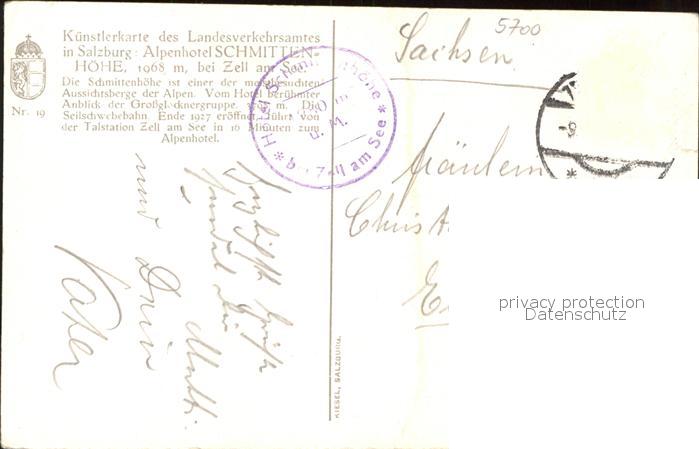 Künstlerkarte des Landesverkehrsamtes
in Salzburg: Alpenhotel SCHMITTEN-
HÖHE, 1968 m, bei Zell am See.
Die Schmittenhöhe ist einer der meistbesuchten
Aussichtsberge der Alpen. Vom Hotel berühmter
Anblick der Großglocknergruppe. m. Die
Seilschwebebahn. Ende 1927 eröffnet, führt von
der Talstation Zell am See in 16 Minuten zum
Alpenhotel.
Nr. 19
Hotel Schmittenhöhe
ü. M.
* bei Zell am See *
5700
Sachsen
Fräulein
Herzlichste Grüße
sendet Dir
Mutti
und Dein
Vater
KIESEL, SALZBURG.
privacy protection
Datenschutz